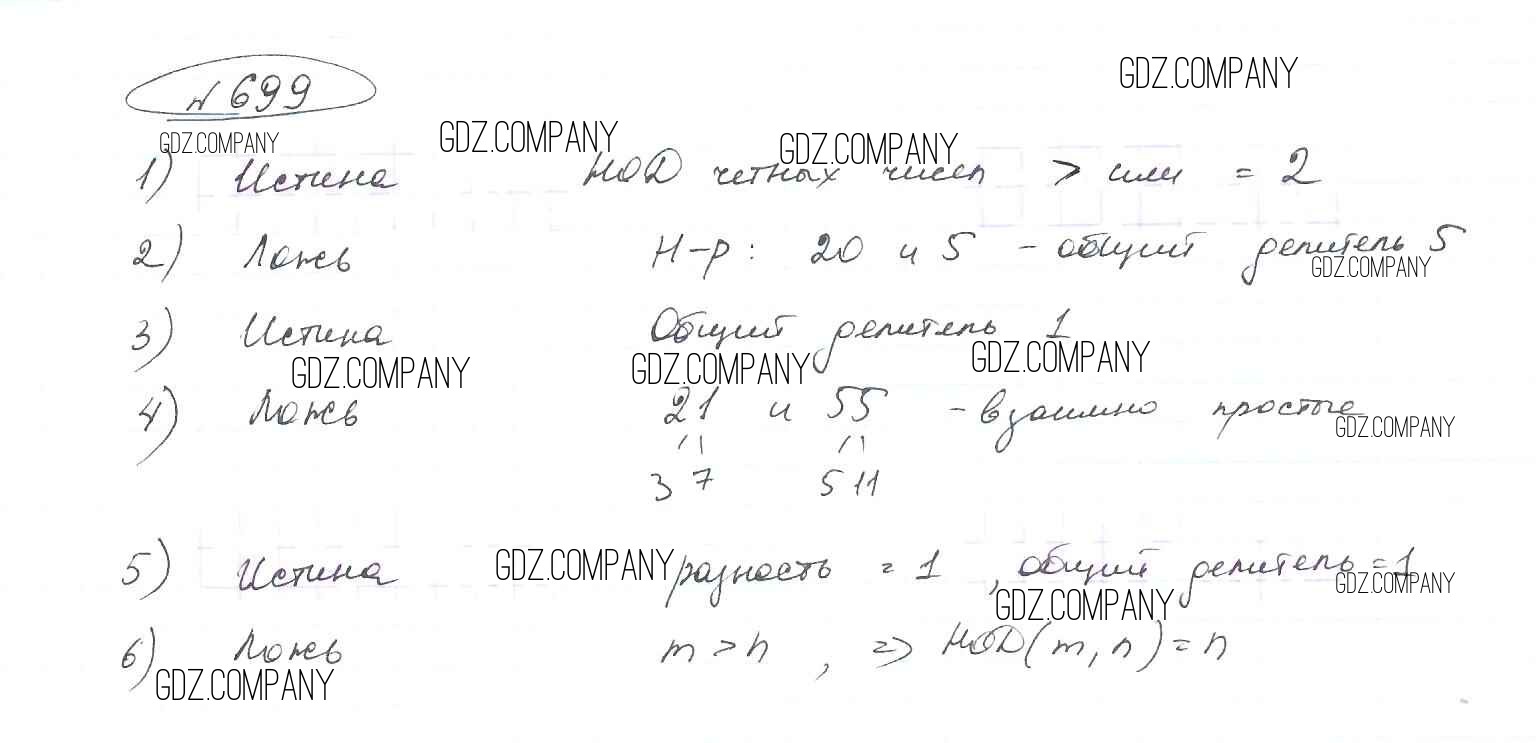 № 699
GDZ.COMPANY
GDZ.COMPANY GDZ.COMPANY GDZ.COMPANY
1) Истина НОД четных чисел > или = 2
2) Ложь Н-р: 20 и 5 - общий делитель 5
GDZ.COMPANY
3) Истина Общий делитель 1
GDZ.COMPANY GDZ.COMPANY GDZ.COMPANY
4) Ложь 21 и 55 - взаимно простые
GDZ.COMPANY
3 7 5 11
5) Истина GDZ.COMPANY разность = 1, общий делитель = 1
GDZ.COMPANY GDZ.COMPANY
6) Ложь m > n, => НОД(m, n) = n
GDZ.COMPANY